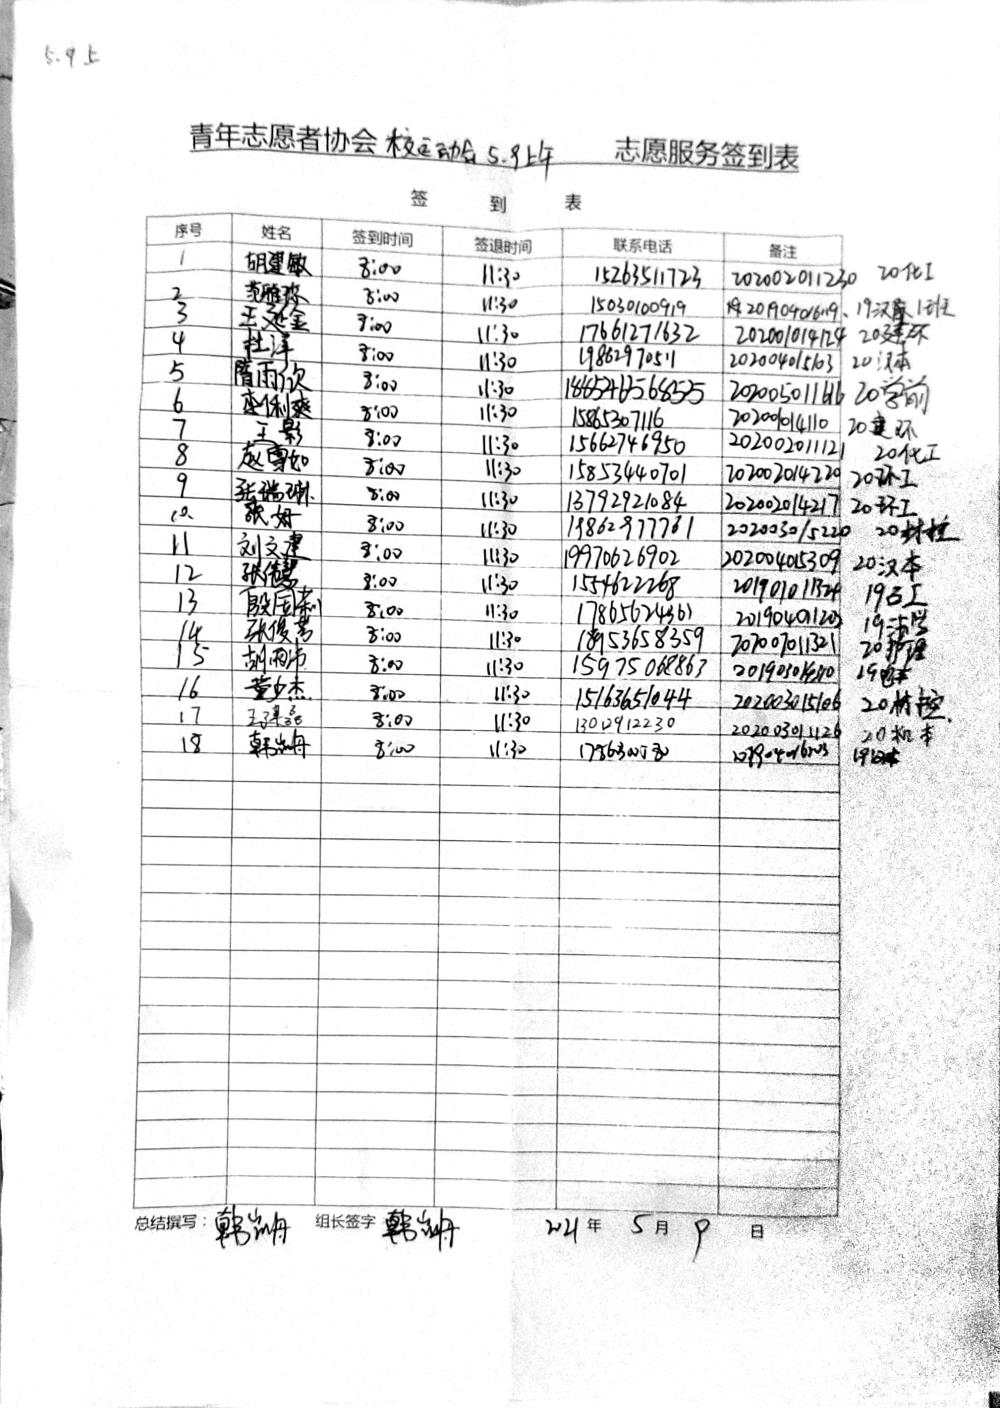 5.9上
青年志愿者协会 校运动会 5.9上午 志愿服务签到表
签 到 表
序号 姓名 签到时间 签退时间 联系电话 备注
1 胡建敏 8:00 11:30 15263511723 202002011230 20化工
2 范雅 8:00 11:30 15030100919 19汉 1班
3 王 金 8:00 11:30 17661271632 202001014124 20建环
4 杜洋 8:00 11:30 19862970511 202004015103 20汉本
5 隋雨欣 8:00 11:30 202005011616 20学前
6 俐爽 8:00 11:30 15865307116 20建环
7 王影 8:00 11:30 15662746950 202002011121 20化工
8 赵雪如 8:00 11:30 15853440701 202002014220 20环工
9 张瑞琳 8:00 11:30 13792921084 202002014217 20环工
10 张妍 8:00 11:30 19862977761 202003015220 20材控
11 刘文建 8:00 11:30 19970626902 202004015309 20汉本
12 张倩慧 8:00 11:30 1554622268 19石工
13 殷国利 8:00 11:30 17865624361 201904011203 19法学
14 张俊 8:00 11:30 18953658359 207007011321 20护理
15 胡雨沛 8:00 11:30 15975068863 19电本
16 董少杰 8:00 11:30 15163651044 202003015106 20材控
17 8:00 11:30 13012912230 202003011126 20机本
18 韩岚舟 8:00 11:30
总结撰写： 韩岚舟 组长签字 韩岚舟 2021 年 5 月 9 日